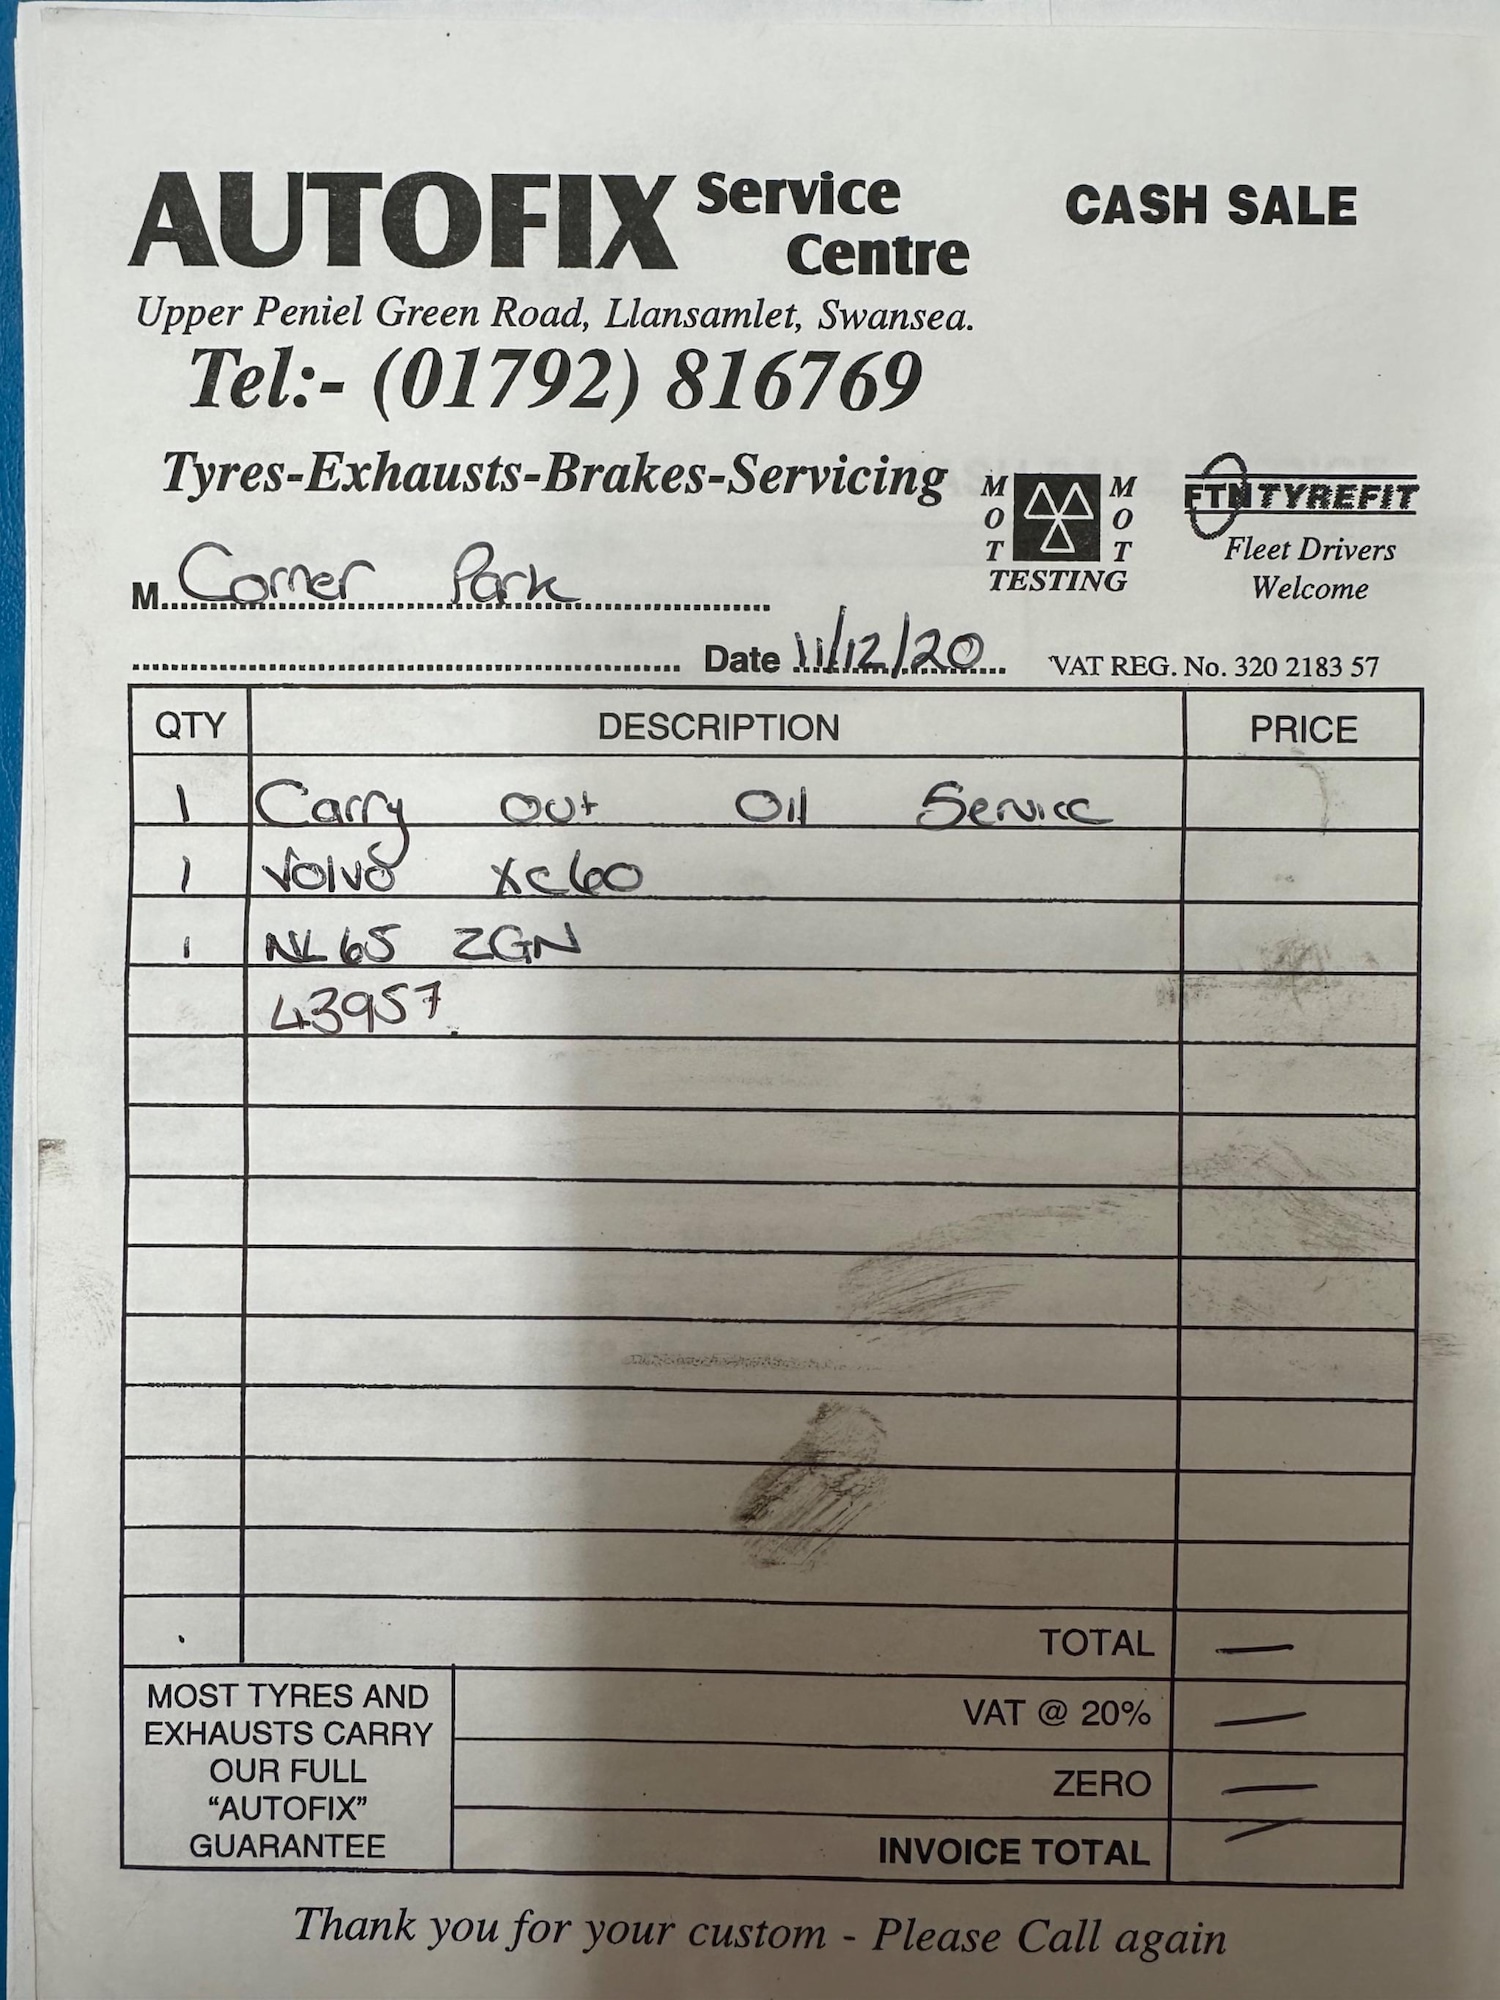 AUTOFIX Service Centre
CASH SALE
Upper Peniel Green Road, Llansamlet, Swansea.
Tel:- (01792) 816769
Tyres-Exhausts-Brakes-Servicing
MOT MOT
TESTING
FTN TYREFIT
Fleet Drivers
Welcome
M Corner Park
Date 11/12/20
VAT REG. No. 320 2183 57
QTY DESCRIPTION PRICE
1 Carry out Oil Service
1 Volvo XC60
1 NL65 ZGN
43957.
TOTAL —
VAT @ 20% —
ZERO —
INVOICE TOTAL —
MOST TYRES AND
EXHAUSTS CARRY
OUR FULL
“AUTOFIX”
GUARANTEE
Thank you for your custom - Please Call again